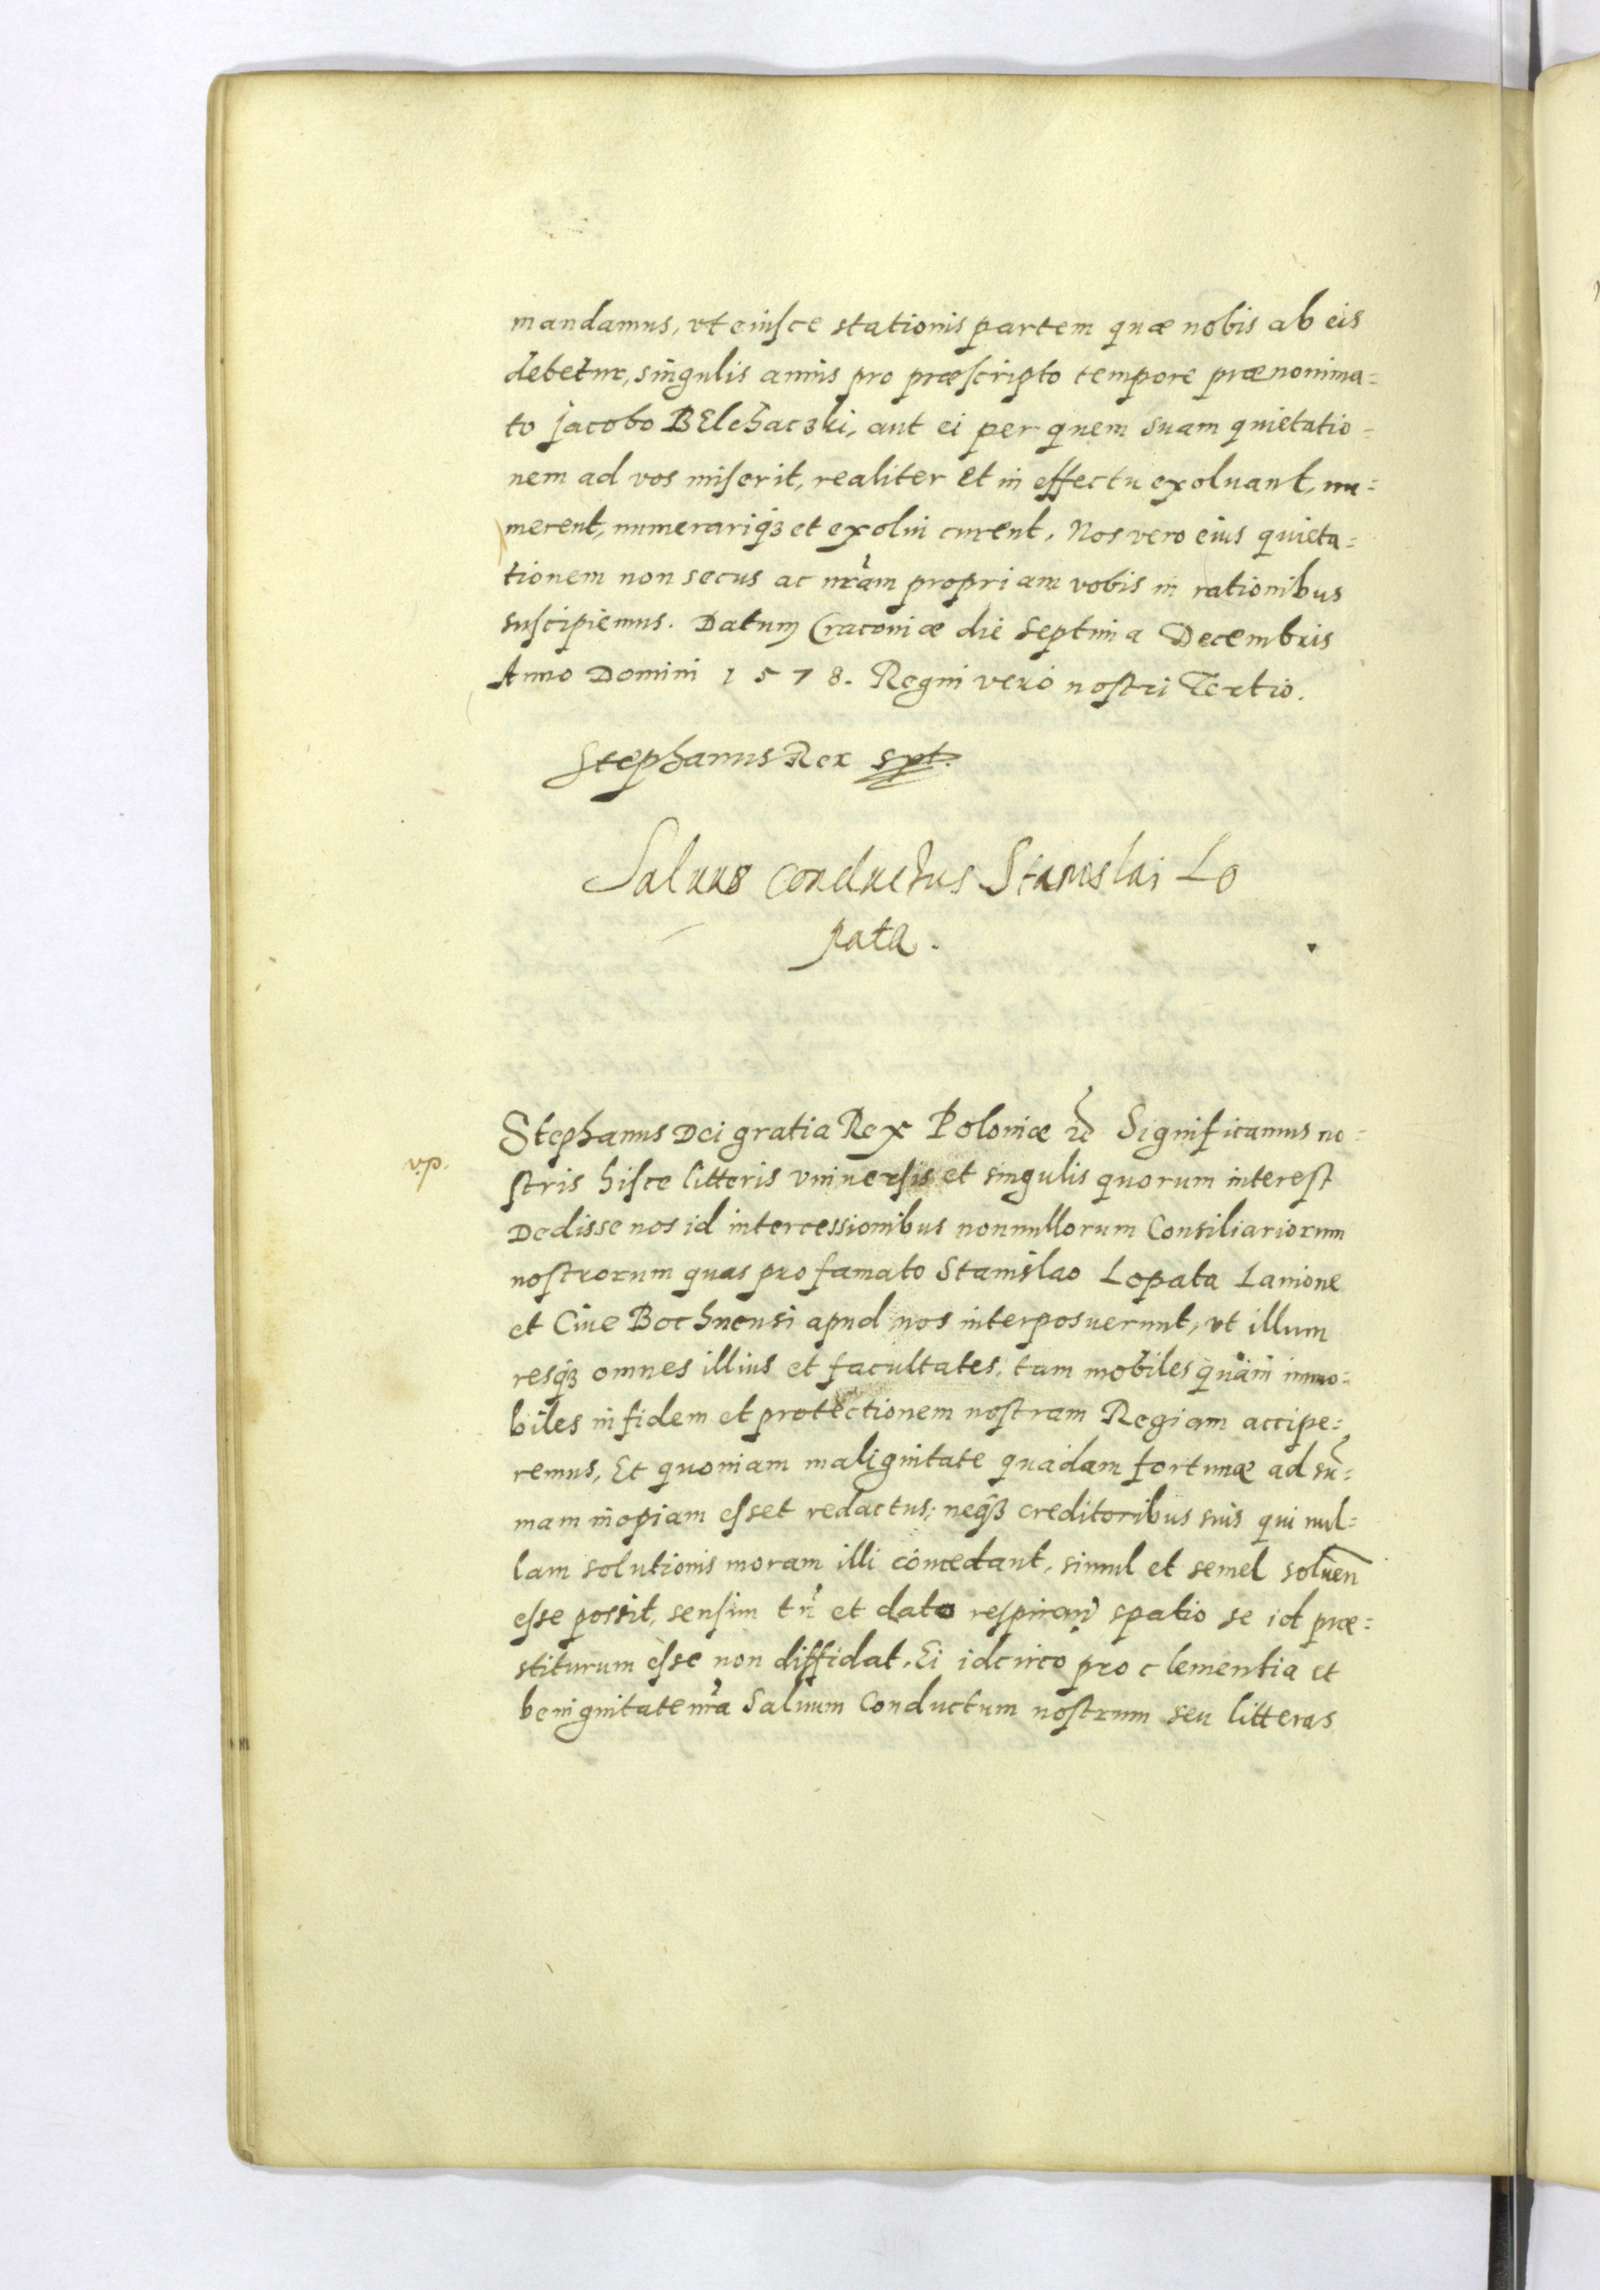 mandamus, vt eiusce stationis partem quæ nobis ab eis
debetur, singulis annis pro præscripto tempore prænomina=
to Jacobo BElchaczki, aut ei per quem suam quietatio=
nem ad vos miserit, realiter et in effectu exoluant, nu=
merent, numerariq3 et exolui curent. Nos vero eius quieta=
tionem non secus ac nr̃am propriam vobis in rationibus
suscipiemus. Datum Cracouiæ die Septima Decembris
Anno Domini 1578. Regni vero nostri Tertio.
Stephanus Rex spt.
Saluus Conductus Stanislai Lo
pata.
Stephanus Dei gratia Rex Poloniæ &c Significamus no=
v.p.
stris hisce litteris vniuersis et singulis quorum interest
Dedisse nos id intercessionibus nonnullorum Consiliariorum
nostrorum quas pro famato Stanislao Lopata Lanione
et Ciue Bochnensi apud nos interposuerunt, vt illum
resq3 omnes illius et facultates, tam mobiles quàm immo=
biles in fidem et protectionem nostram Regiam accipe=
remus, Et quoniam malignitate quadam fortunæ ad sum̃=
mam inopiam esset redactus, neq3 creditoribus suis qui nul=
lam solutionis moram illi concedant, simul et semel soluen̄
esse possit, sensim tñ et dato respiran̄ spatio se id præ=
stiturum esse non diffidat. Ei idcirco pro clementia et
benignitate nr̃a Saluum Conductum nostrum seu litteras